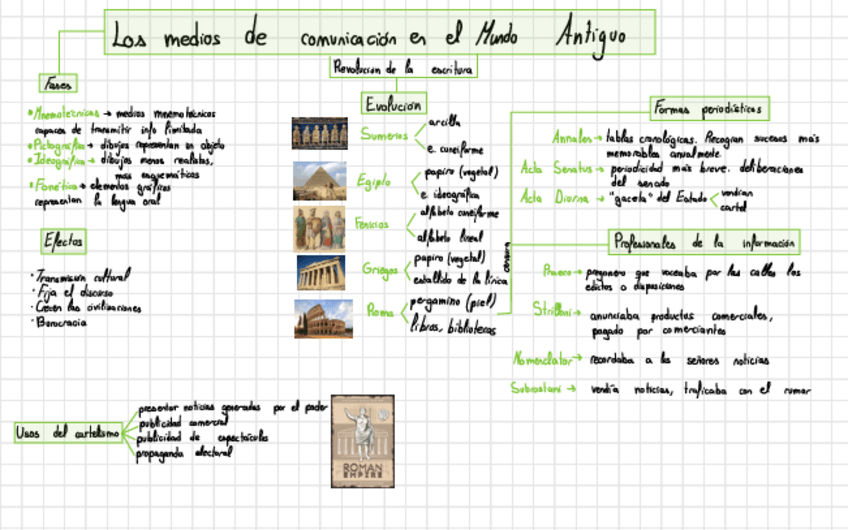 Los medios de comunicación en el Mundo Antiguo
Revolución de la escritura
Fases
• Mnemotécnicas → medios mnemotécnicos
capaces de transmitir info limitada
• Pictográfica → dibujos representan un objeto
• Ideográfica → dibujos menos realistas,
más esquemáticos
• Fonética → elementos gráficos
representan la lengua oral
Efectos
· Transmisión cultural
· Fija el discurso
· Crecen las civilizaciones
· Burocracia
Evolución
Sumerios
arcilla
e. cuneiforme
Egipto
papiro (vegetal)
e. ideográfica
Fenicios
alfabeto cuneiforme
alfabeto lineal
Griegos
papiro (vegetal)
estallido de la lírica
Roma
pergamino (piel)
libros, bibliotecas
censura
Formas periodísticas
Annales → tablas cronológicas. Recogían sucesos más
memorables anualmente
Acta Senatus → periodicidad más breve. deliberaciones
del senado
Acta Diurna → "gaceta" del Estado
vendían
cartel
Profesionales de la información
Praeco → pregonero que voceaba por las calles los
edictos o disposiciones
Strilloni → anunciaba productos comerciales,
pagado por comerciantes
Nomenclator → recordaba a los señores noticias
Subrostani → vendía noticias, traficaba con el rumor
Usos del cartelismo
presentar noticias generadas por el poder
publicidad comercial
publicidad de espectáculos
propaganda electoral
ROMAN
EMPIRE